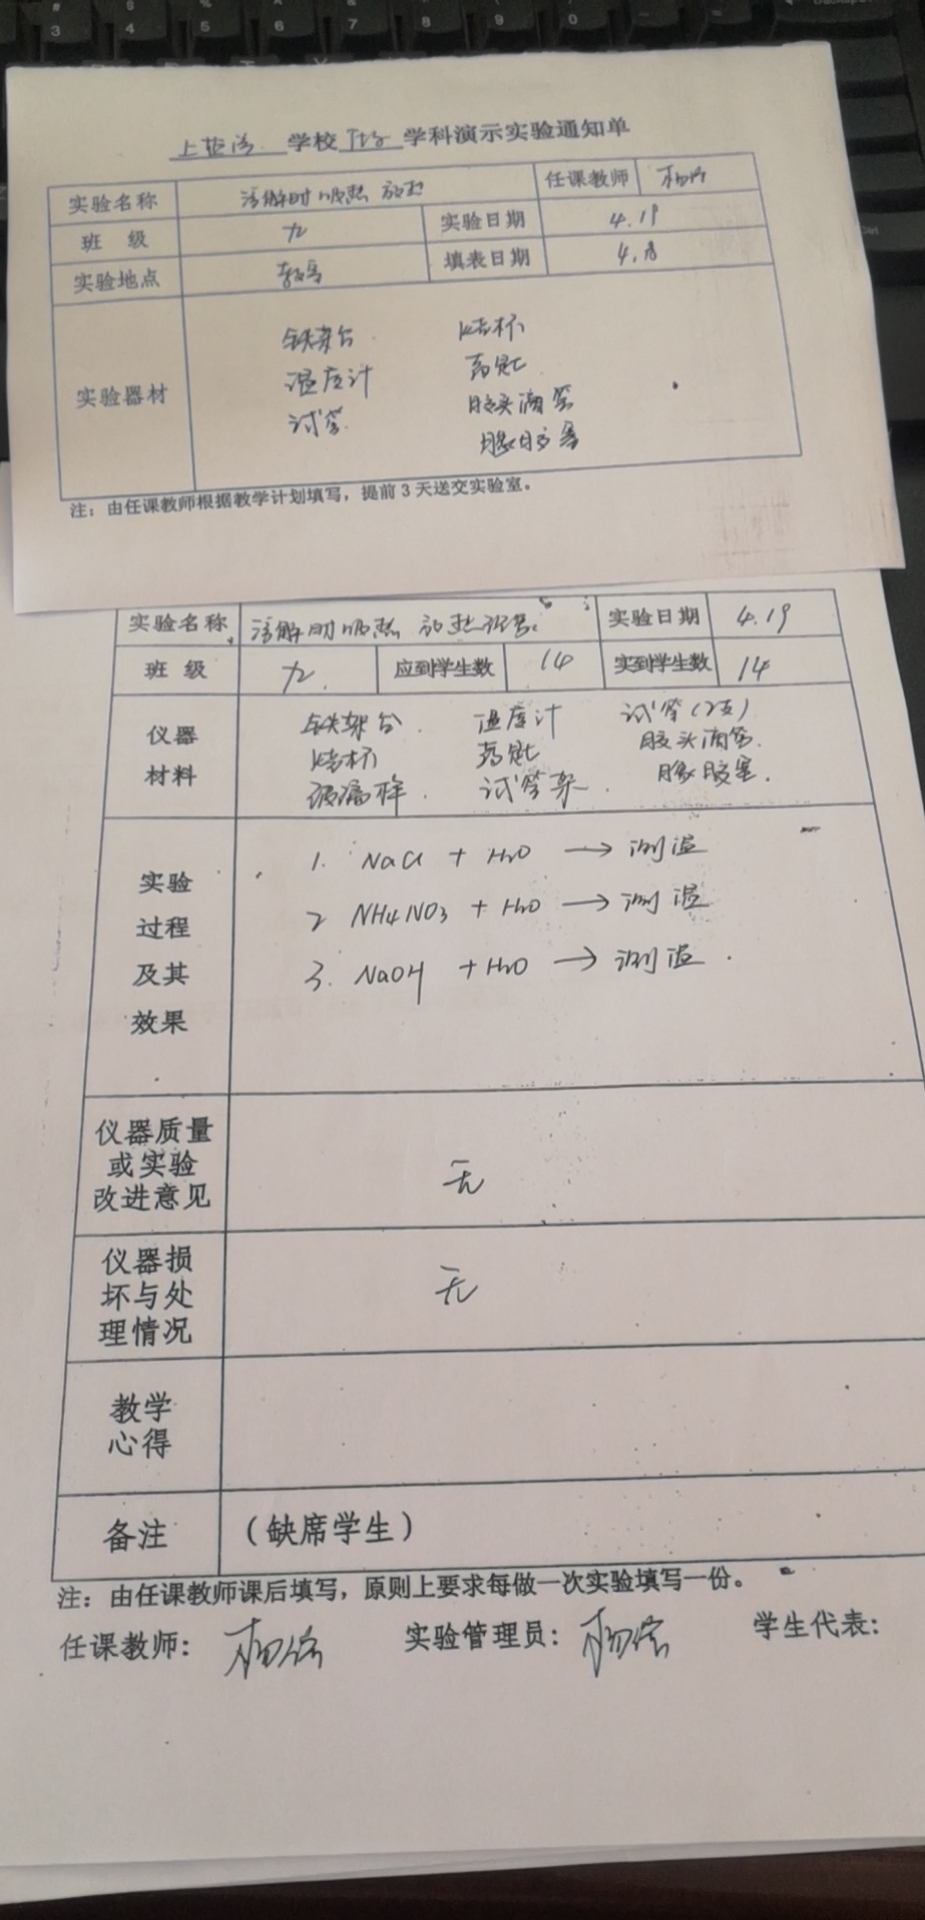 学校 化学 学科演示实验通知单
实验名称 溶解时吸热 放热 任课教师
班 级 九 实验日期 4.19
实验地点 教室 填表日期 4.8
实验器材
铁架台 烧杯
温度计 药匙
试管 胶头滴管
橡胶塞
注：由任课教师根据教学计划填写，提前3天送交实验室。
实验名称 溶解时吸热 放热现象 实验日期 4.19
班 级 九. 应到学生数 14 实到学生数 14
仪器
材料
铁架台 温度计 试管(2支)
烧杯 药匙 胶头滴管.
玻璃棒. 试管架. 橡胶塞.
实验
过程
及其
效果
1. NaCl + H2O → 测温
2 NH4NO3 + H2O → 测温
3. NaOH + H2O → 测温.
仪器质量
或实验
改进意见
无
仪器损
坏与处
理情况
无
教学
心得
备注 (缺席学生)
注：由任课教师课后填写，原则上要求每做一次实验填写一份。
任课教师： 实验管理员： 学生代表：